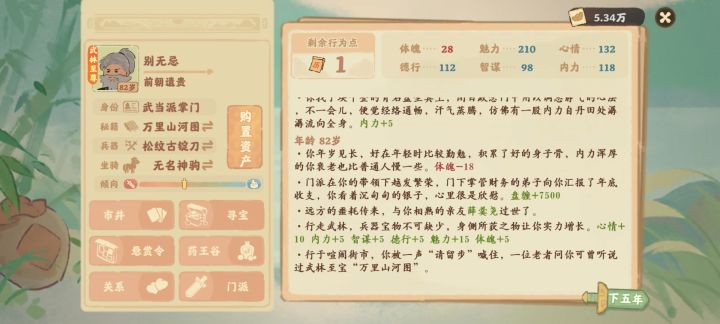 武林至尊
82岁
别无忌
前朝遗贵
身份
武当派掌门
秘籍
万里山河图
兵器
松纹古锭刀
坐骑
无名神驹
倾向
购置资产
市井
寻宝
悬赏令
药王谷
关系
门派
5.34万
剩余行为点
1
体魄 28
魅力 210
心情 132
德行 112
智谋 98
内力 118
，不一会儿，便觉经络通畅，汗气蒸腾，仿佛有一股内力自丹田处潺
潺流向全身。内力+5
年龄 82岁
·你年岁见长，好在年轻时比较勤勉，积累了好的身子骨，内力深厚
的你衰老也比普通人慢一些。体魄-18
·门派在你的带领下越发繁荣，门下掌管财务的弟子向你汇报了年底
收支，你看着沉甸甸的银子，心里很是欣慰。盘缠+7500
·远方的噩耗传来，与你相熟的亲友薛黄羌过世了。
·行走武林，兵器宝物不可缺少，身侧所获之物让你实力增长。心情+
10 内力+5 智谋+5 德行+5 魅力+15 体魄+5
·行于喧闹街市，你被一声“请留步”喊住，一位老者问你可曾听说
过武林至宝“万里山河图”。
下五年